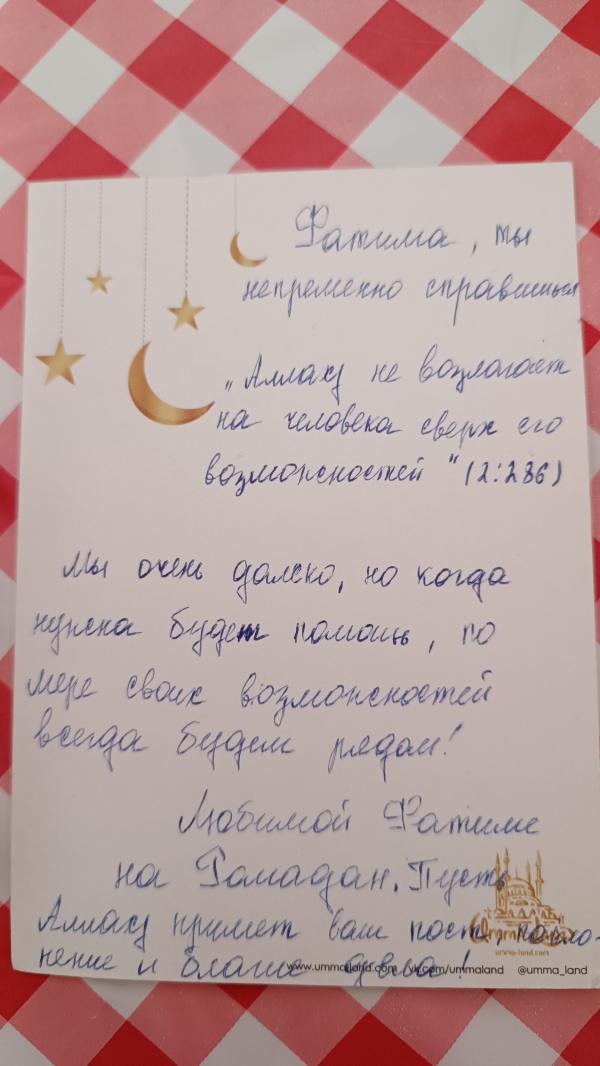 Фатима, ты
непременно справишься
„Аллах не возлагает
на человека сверх его
возможностей" (2:286)
Мы очень далеко, но когда
нужна будет помощь, по
мере своих возможностей
всегда будем рядом!
Любимой Фатиме
на Рамадан. Пусть
Аллах примет ваш пост, покло-
нение и благие дела!
umma-land.com
www.ummaland.com vk.com/ummaland @umma_land